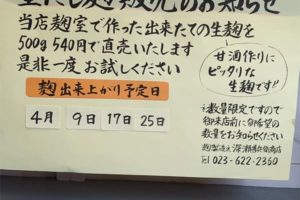 生こうじ販売のお知らせ
当店麹室で作った出来たての生麹を
500g 540円で直売いたします
是非一度お試しください
甘酒作りに
ピッタリな
生麹です!!
麹出来上がり予定日
4月 9日 17日 25日
※数量限定ですので
御来店前に御希望の
数量をお知らせください
TEL 023-622-2360